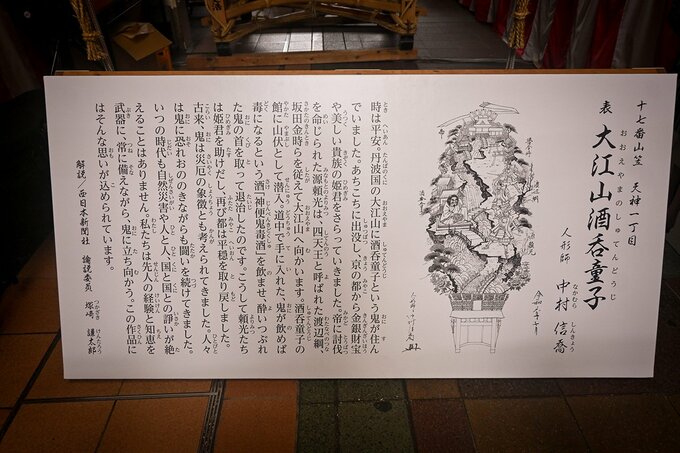 十七番山笠 天神一丁目
表 大江山酒呑童子
おおえやましゅてんどうじ
人形師 中村 信喬
なかむら しんきょう
時は平安。丹波国の大江山に酒呑童子という鬼が住ん
でいました。あちこちに出没し、京の都から金銀財宝
や美しい貴族の姫君をさらっていきました。帝に討伐
を命じられた源頼光は、四天王と呼ばれた渡辺綱、
坂田金時らを従えて大江山へ向かいます。酒呑童子の
館に山伏として潜入。道中で手に入れた、鬼が飲めば
毒になるという酒「神便鬼毒酒」を飲ませ、酔いつぶれ
た鬼の首を取って退治したのです。こうして頼光たち
は姫君を助けだし、再び都は平穏を取り戻しました。
古来、鬼は災厄の象徴とも考えられてきました。人々
は鬼に恐れおののきながらも闘いを続けてきました。
いつの時代も自然災害や人と人、国と国の諍いが絶
えることはありません。私たちは先人の経験と知恵を
武器に、常に備えながら、鬼に立ち向かう。この作品に
はそんな思いが込められています。
解説／西日本新聞社 論説委員 塚崎 謙太郎
つかざき けんたろう